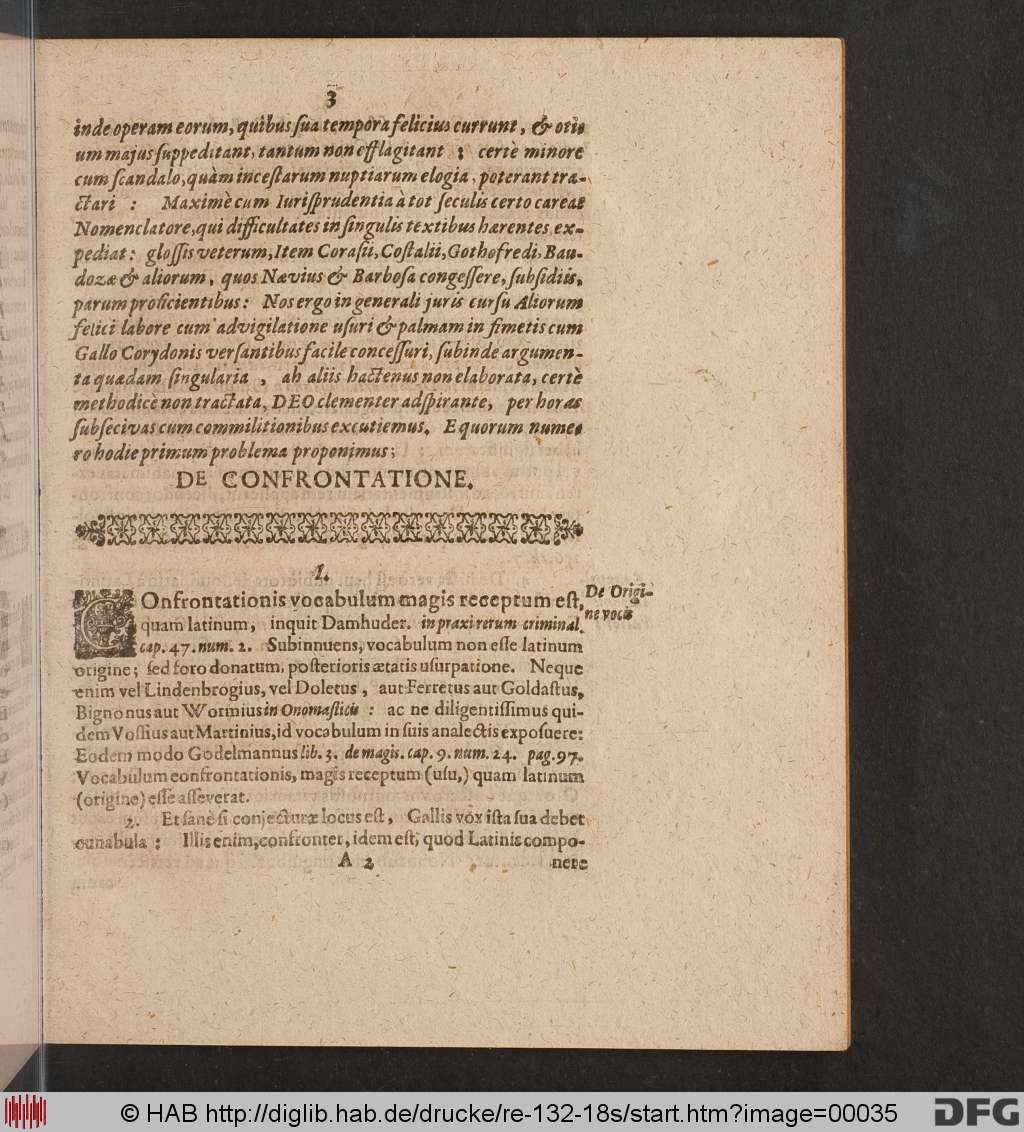 3
inde operam eorum, quibus sua tempora felicius currunt, & oti
um majus suppeditant, tantum non efflagitant ; certè minore
cum scandalo, quàm incestarum nuptiarum elogia, poterant tra-
ctari : Maximè cum Iurisprudentia à tot seculis certo careat
Nomenclatore, qui difficultates in singulis textibus hærentes ex-
pediat : glossis veterum, Item Corasii, Costalii, Gothofredi, Bau-
dozæ & aliorum, quos Nævius & Barbosa congessere, subsidiis,
parum proficientibus : Nos ergo in generali juris cursu Aliorum
felici labore cum advigilatione usuri & palmam in fimetis cum
Gallo Corydonis versantibus facile concessuri, subinde argumen-
ta quædam singularia , ab aliis hactenus non elaborata, certè
methodicè non tractata, DEO clementer adspirante, per horas
subsecivas cum commilitionibus excutiemus. E quorum nume-
ro hodie primum problema proponimus;
DE CONFRONTATIONE.
1.
COnfrontationis vocabulum magis receptum est,
De Origi-
quam latinum, inquit Damhuder. in praxi rerum criminal.
ne vocis
cap. 47. num. 2. Subinnuens, vocabulum non esse latinum
origine; sed foro donatum, posterioris ætatis usurpatione. Neque
enim vel Lindenbrogius, vel Doletus , aut Ferretus aut Goldastus,
Bignonus aut Wormius in Onomasticis : ac ne diligentissimus qui-
dem Vossius aut Martinius, id vocabulum in suis analectis exposuere:
Eodem modo Godelmannus lib. 3. de magis. cap. 9. num. 24. pag. 97.
Vocabulum confrontationis, magis receptum (usu,) quam latinum
(origine) esse asseverat.
2. Et sanè si conjecturæ locus est, Gallis vox ista sua debet
cunabula : Illis enim, confronter, idem est, quod Latinis compo-
A 2 nere
© HAB http://diglib.hab.de/drucke/re-132-18s/start.htm?image=00035
DFG